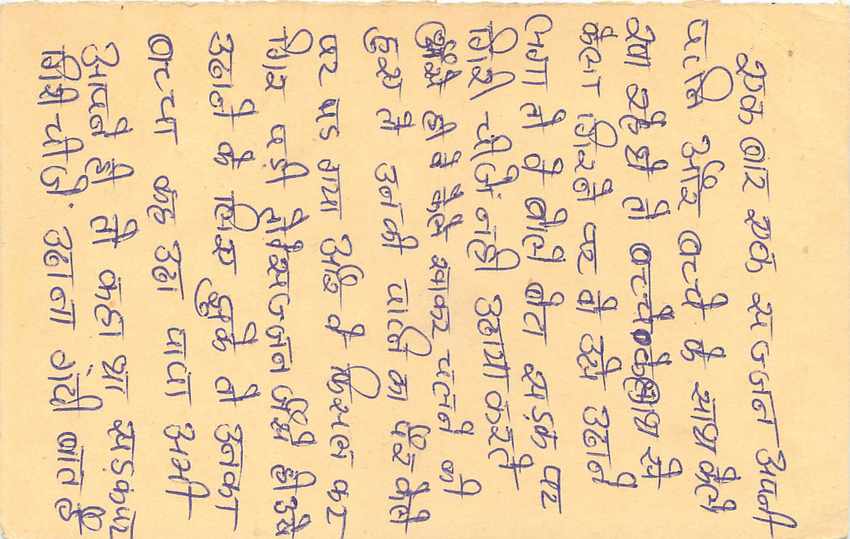 एक बार एक सज्जन अपनी
पत्नि और बच्चे के साथ केले
खा रहे थे तो बच्चे के हाथ से
केला गिरने पर वो उसे उठाने
लगा तो वे बोले बेटा सड़क पर
गिरी चीजें नही उठाया करते
जैसे ही वे केले खाकर चलने को
हुए तो उनकी पत्नि का पैर केले
पर पड गया और वे फिसल कर
गिर पडी सज्जन जैसे ही उसे
उठाने के लिए झुके तो उनका
बच्चा कह उठा पापा अभी
आपने ही तो कहा था सड़क पर
गिरी चीजें उठाना गंदी बात है